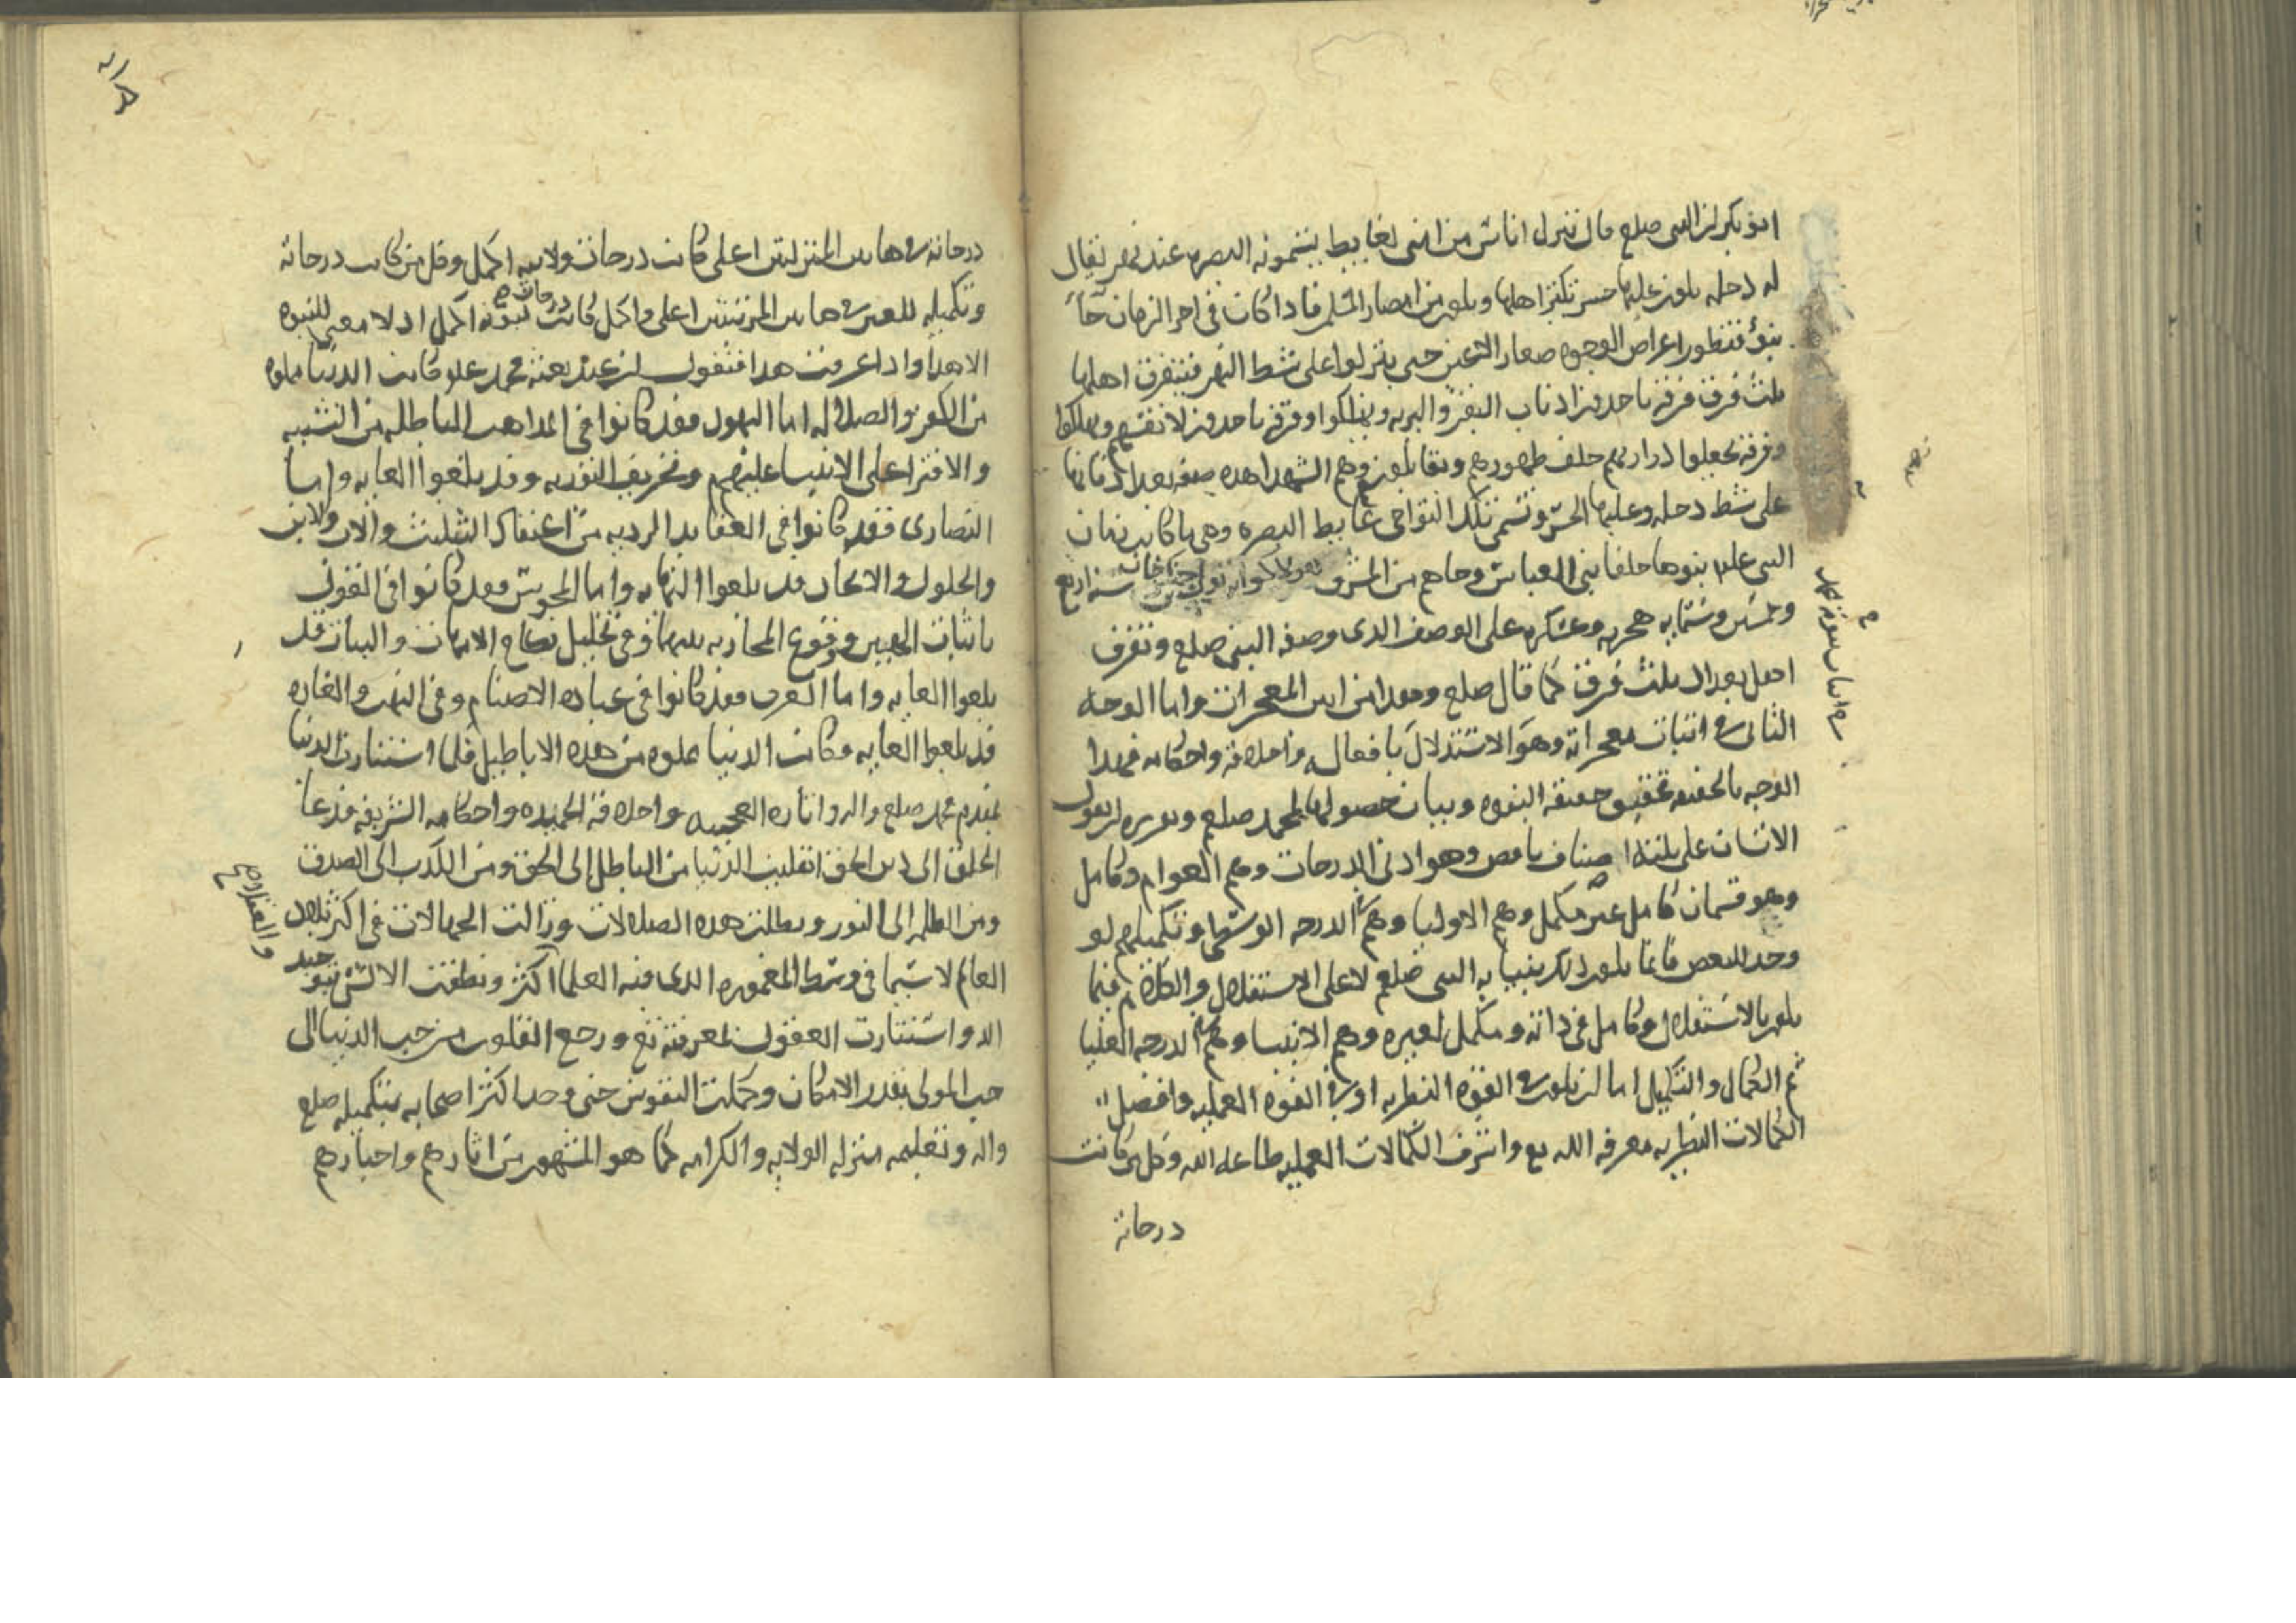 ابو بكر ان النبى صلعم قال ينزل اناس من امتى لغايط يسمونه البصره عند نهر يقال
له دجله يكون عليها جسر يكثر اهلها ويكون من امصار المسلمين فاذا كان فى اخر الزمان جا
بنو قنطورا عراض الوجوه صغار الاعين حتى ينزلوا على شط النهر فيتفرق اهلها
ثلث فرق فرقه ياخذون اذناب البقر والبريه ويهلكوا وفرقه ياخذون لانفسهم وهلكوا
وفرقه يجعلوا ذراريهم خلف ظهورهم ويقاتلون وهم الشهدا هذه صفه بغداد فانها
على شط دجله وعليها الجسر وتسمى تلك النواحى غايط البصره وهى ما كانت زمان
النبى علم بنوها خلفا بنى العباس وجاهم من المشرق هولاكو ابن تولى بن جنكيز خان سنه اربع
وخمسين وستمايه هجريه وعسكره على الوصف الذى وصفه النبى صلعم وتفرق
اهل بغداد ثلث فرق كما قال صلعم وهذا من ابين المعجزات واما الوجه
الثانى فى اثبات معجزاته وهو الاستدلال بافعاله واخلاقه واحكامه فهذا
الوجه بالحقيقه تحقيق حقيقه النبوه وبيان حصولها لمحمد صلعم وتقريره ان نقول
الانسان على ثلثه اصناف ناقص وهو ادنى الدرجات وهم العوام وكامل
وهو قسمان كامل غير مكمل وهم الاوليا وهم فى الدرجه الوسطى وتكميلهم لو
وجد للبعض فانما يكون ذلك بنيابه النبى صلعم لا على الاستقلال والكلام فيما
يكون بالاستقلال وكامل فى ذاته ومكمل لغيره وهم الانبيا وهم فى الدرجه العليا
ثم الكمال والتكميل اما ان يكون فى القوه النظريه او فى القوه العمليه وافضل
الكمالات النظريه معرفه الله تع واشرف الكمالات العمليه طاعه الله وكل من كانت
درجاته
فى اثبات نبوه محمد
درجاته فى هاتين المنزلتين اعلى كانت درجات ولايته اكمل وكل من كانت درجاته
وتكميله للغير فى هاتين المرتبتين اعلى واكمل كانت درجات نبوته اكمل اذ لا معنى للنبوه
الا هذا واذا عرفت هذا فنقول ان عند بعثه محمد علم كانت الدنيا مملوه
من الكفر والضلاله اما اليهود فقد كانوا فى المذاهب الباطله من التشبيه
والافترا على الانبيا عليهم وتحريف التوريه وقد بلغوا الغايه واما
النصارى فقد كانوا فى العقايد الرديه من اعتقاد التثليث والاب والابن
والحلول والاتحاد قد بلغوا النهايه واما المجوس فقد كانوا فى القول
باثبات الهين ووقوع المحاربه بينهما وفى تحليل نكاح الامهات والبنات قد
بلغوا الغايه واما العرب فقد كانوا فى عباده الاصنام وفى النهب والغاره
قد بلغوا الغايه فكانت الدنيا مملوه من هذه الاباطيل فلما استنارت الدنيا
بمقدم محمد صلعم واله واثاره العجيبه واخلاقه الحميده واحكامه الشريفه فدعا
الخلق الى دين الحق انقلبت الدنيا من الباطل الى الحق ومن الكذب الى الصدق
ومن الظلمه الى النور وبطلت هذه الضلالات وزالت الجهالات فى اكثر بلاد
العالم لا سيما فى وسط المعموره الذى فيه العلما اكثر ونطقت الالسن بتوحيد
الله واستنارت العقول بمعرفته تع ورجع القلوب من حب الدنيا الى
حب المولى بقدر الامكان وكملت النفوس حتى وجد اكثر اصحابه بتكميله صلع
واله وتعليمه منزله الولايه والكرامه كما هو المشهور من اثارهم واخبارهم